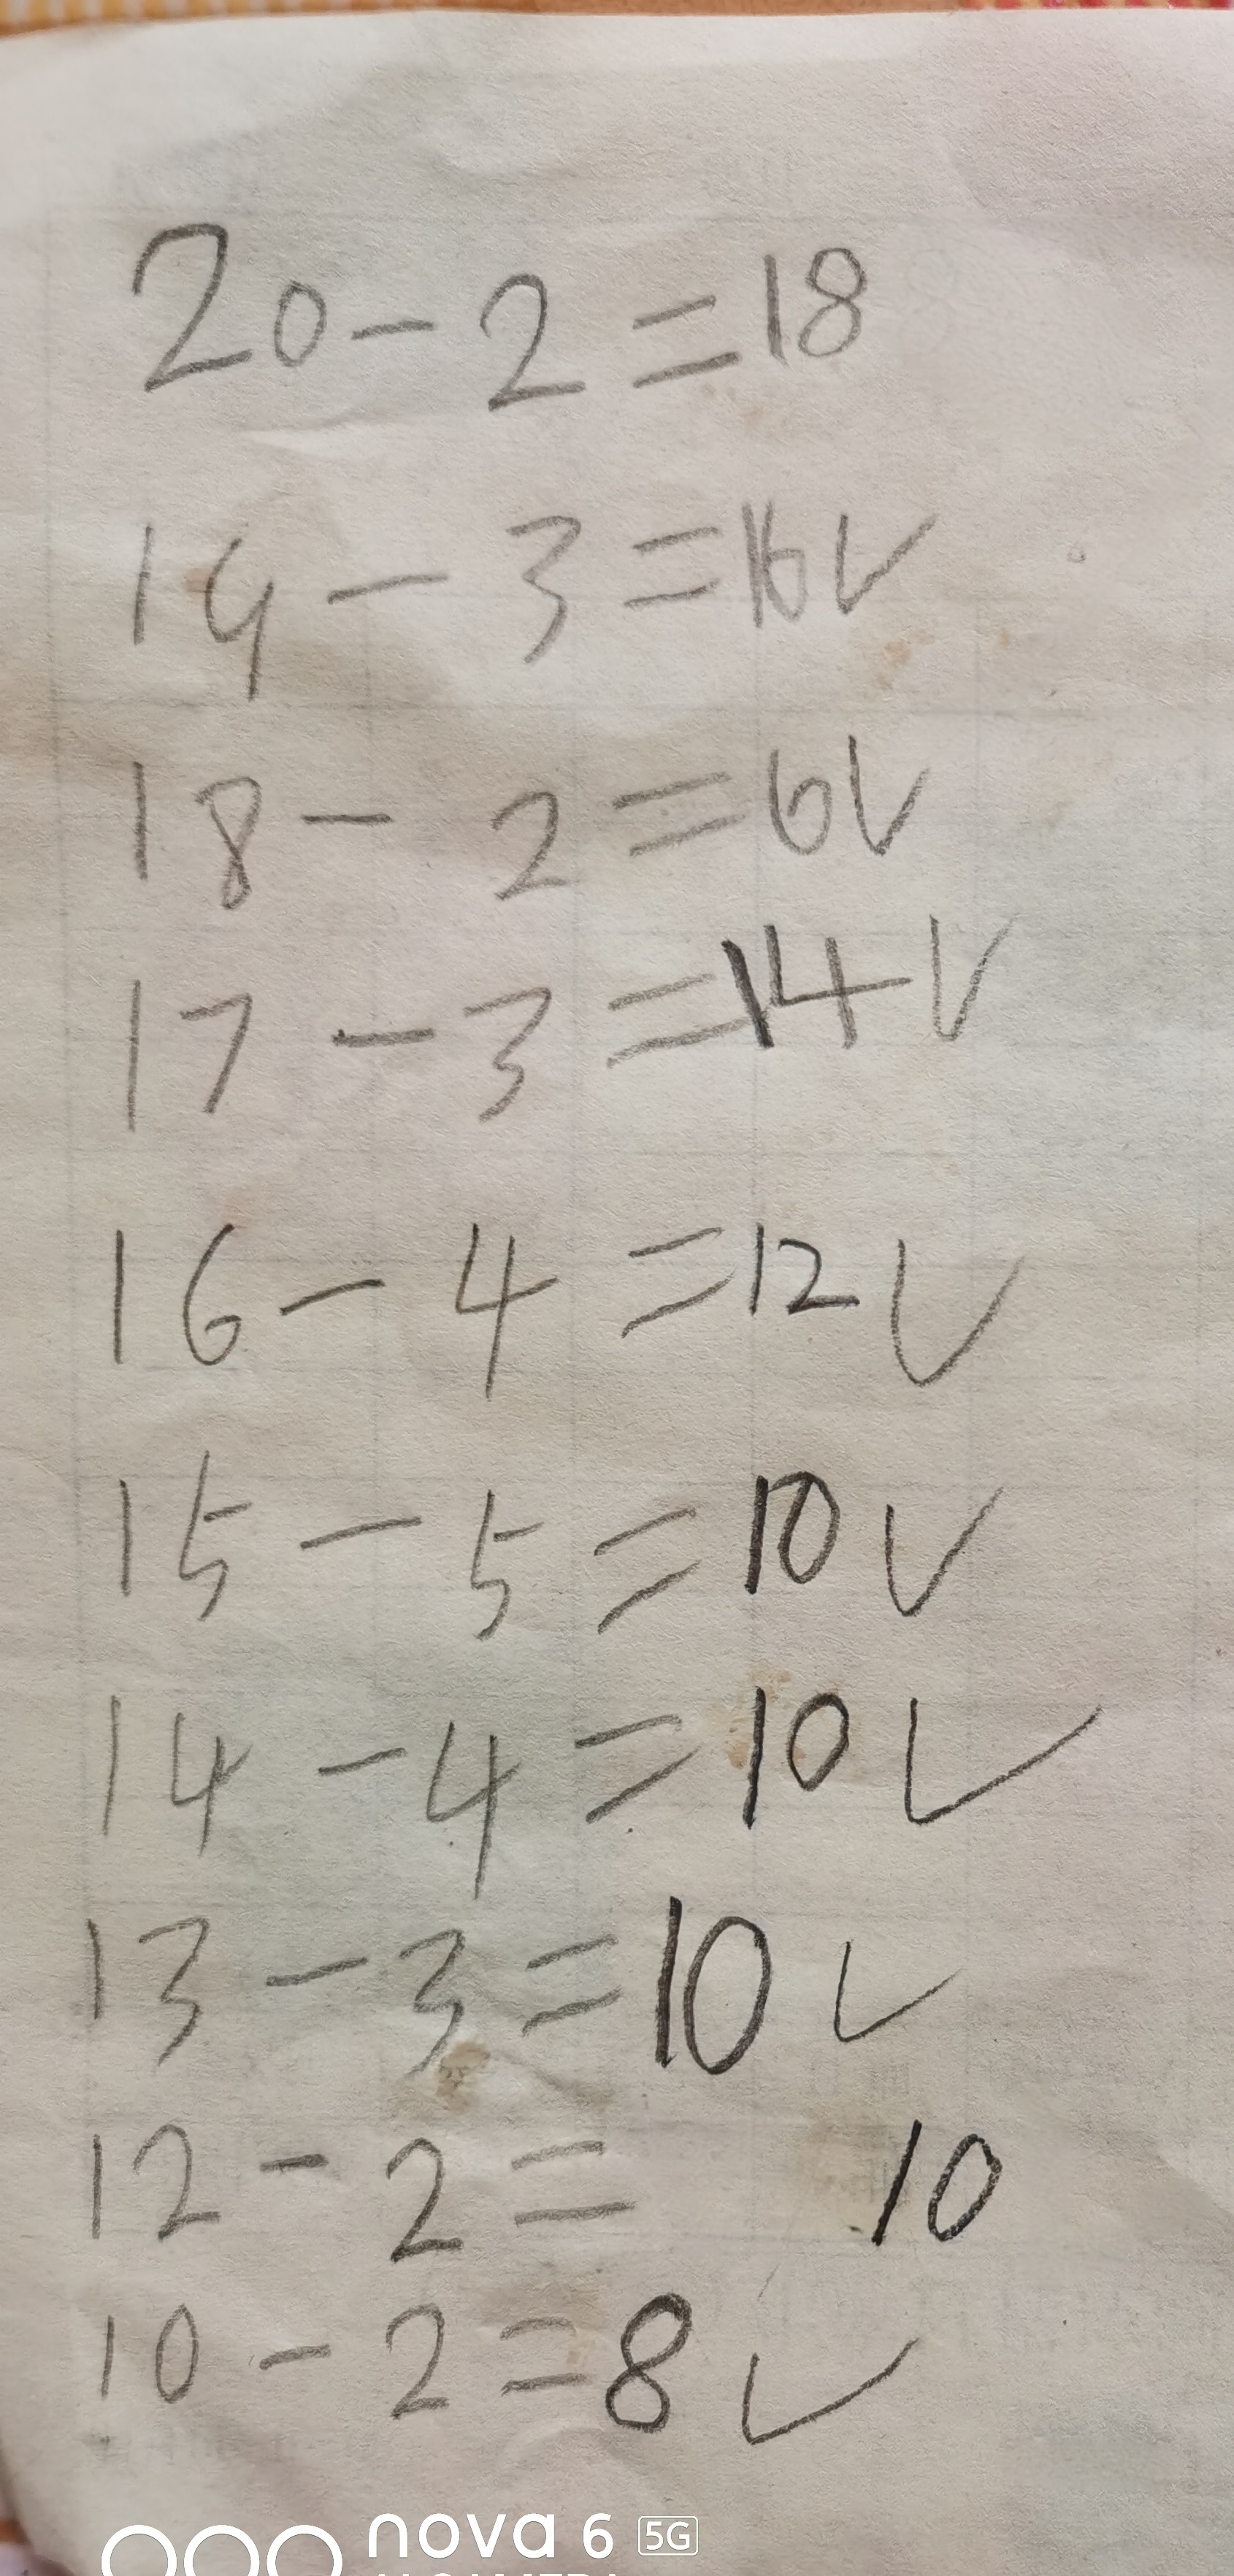 20-2=18
19-3=16✓
18-2=6✓
17-3=14✓
16-4=12✓
15-5=10✓
14-4=10✓
13-3=10✓
12-2= 10
10-2=8✓
nova 6 5G